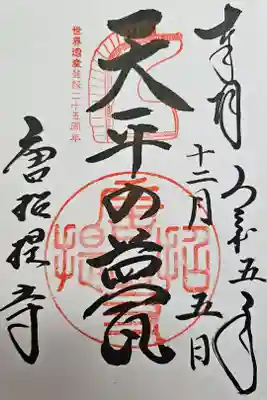 奉拝
令和五年
十二月五日
世界遺産登録二十五周年
天平の甍
唐招提寺
唐招提寺